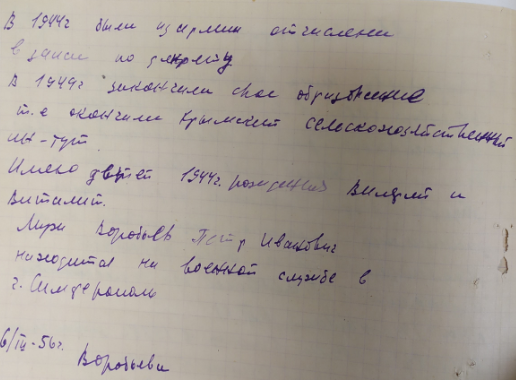 В 1944г были из армии отчислены
в запас по декрету
В 1949г закончила свое образование
т.е окончила Крымский сельскохозяйственный
ин-тут
Имею детей 1944г. рождения Вилдли и
Виталий.
Муж Воробьев Петр Иванович
находится на военной службе в
г. Симферополь
6/III-56г.
Воробьева